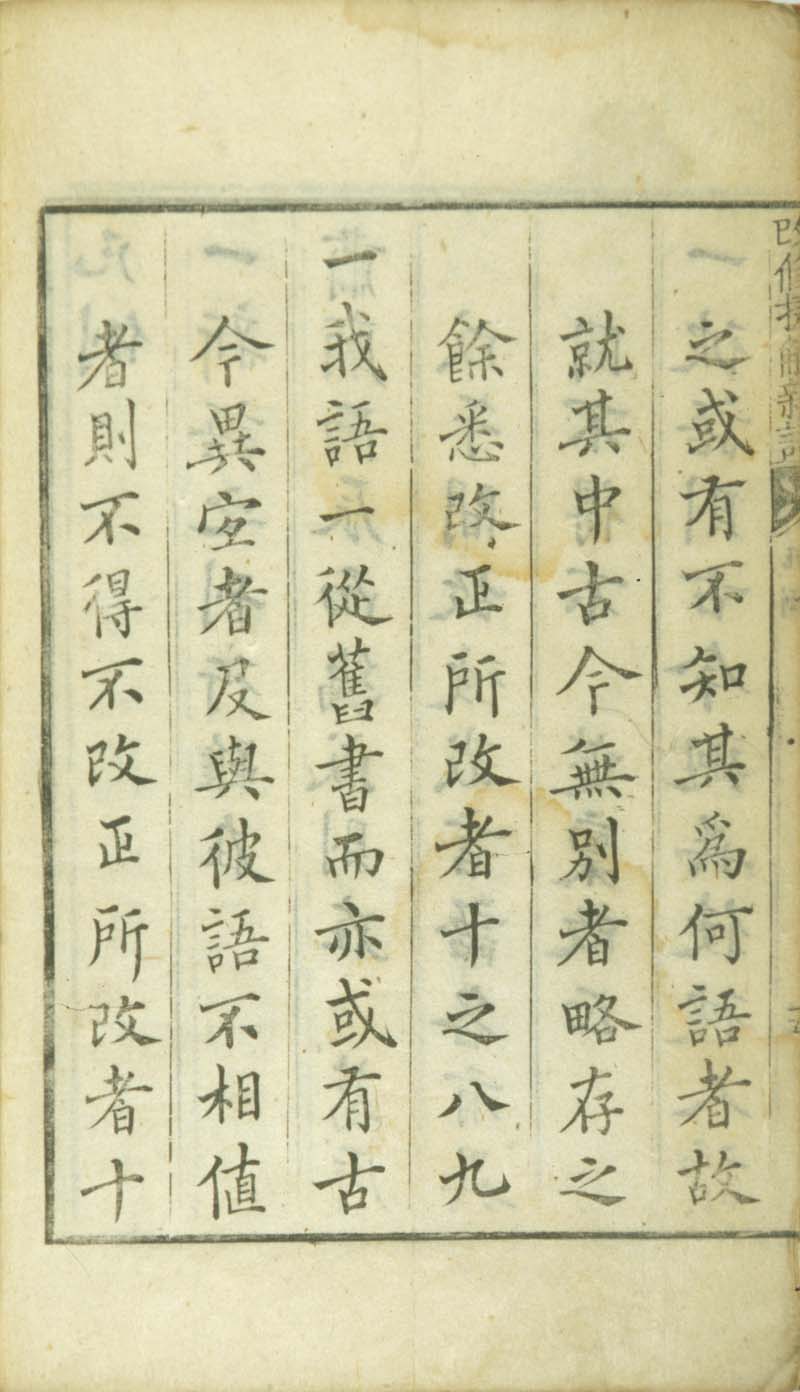 改修捷解新語
之或有不知其爲何語者故
就其中古今無別者略存之
餘悉改正所改者十之八九
一我語一從舊書而亦或有古
今異宜者及與彼語不相値
者則不得不改正所改者十